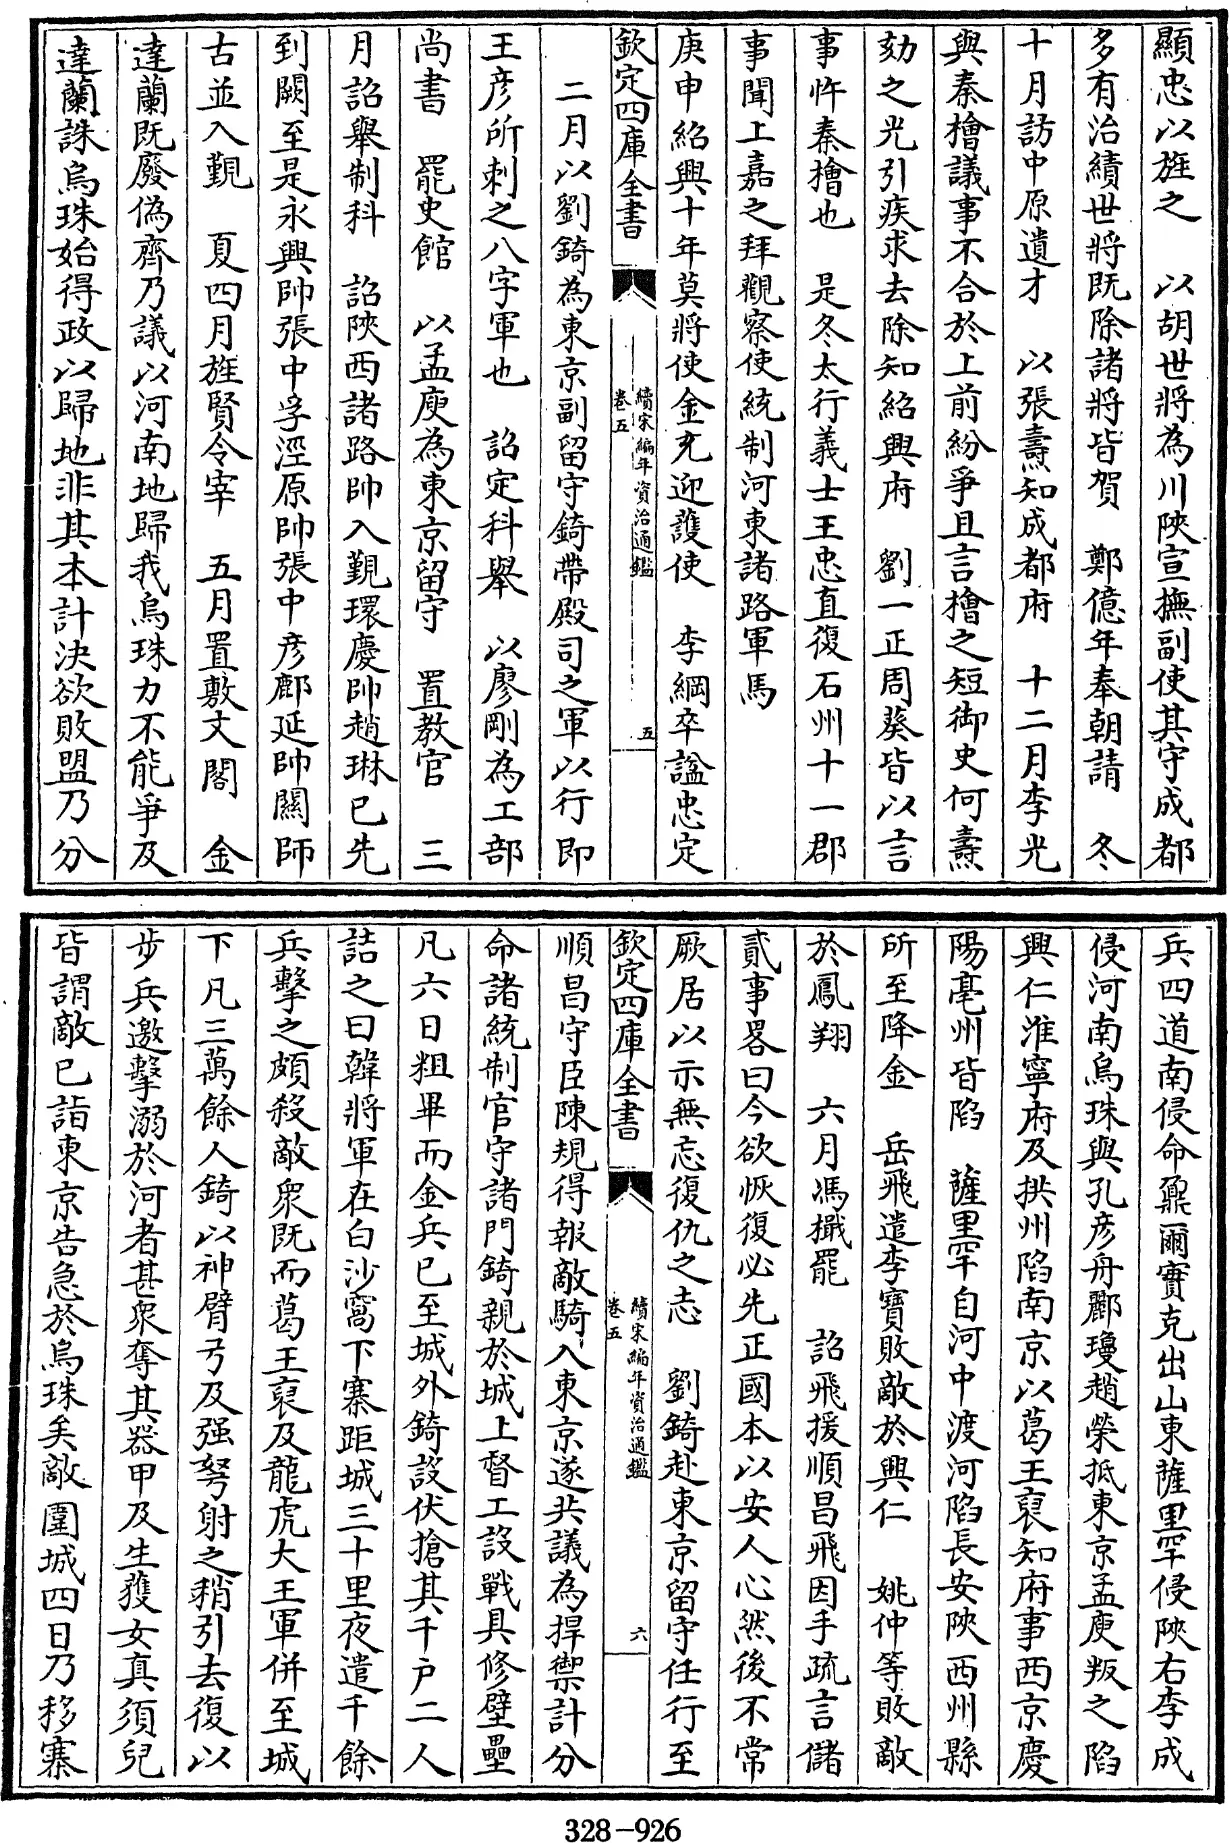 顯忠以旌之　以胡世將為川陝宣撫副使其守成都
多有治績世將既除諸將皆賀　鄭億年奉朝請　冬
十月訪中原遺才　以張燾知成都府　十二月李光
與秦檜議事不合於上前紛爭且言檜之短御史何鑄
劾之光引疾求去除知紹興府　劉一正周葵皆以言
事忤秦檜也　是冬太行義士王忠直復石州十一郡
事聞上嘉之拜觀察使統制河東諸路軍馬
庚申紹興十年莫將使金充迎護使　李綱卒諡忠定
欽定四庫全書
續宋編年資治通鑑
卷五
五
二月以劉錡為東京副留守錡帶殿司之軍以行即
王彦所刺之八字軍也　詔定科舉　以廖剛為工部
尚書　罷史館　以孟庾為東京留守　置教官　三
月詔舉制科　詔陝西諸路帥入覲環慶帥趙琳已先
到闕至是永興帥張中孚涇原帥張中彦鄜延帥關師
古並入覲　夏四月旌賢令宰　五月置敷文閣　金
達蘭既廢偽齊乃議以河南地歸我烏珠力不能爭及
達蘭誅烏珠始得政以歸地非其本計決欲敗盟乃分
兵四道南侵命鼐爾賽克出山東薩里罕侵陝右李成
侵河南烏珠與孔彦舟酈瓊趙榮抵東京孟庾叛之陷
興仁淮寧府及拱州陷南京以葛王裒知府事西京慶
陽亳州皆陷　薩里罕自河中渡河陷長安陝西州縣
所至降金　岳飛遣李寶敗敵於興仁　姚仲等敗敵
於鳳翔　六月馮檝罷　詔飛援順昌飛因手疏言儲
貳事畧曰今欲恢復必先正國本以安人心然後不常
厥居以示無忘復仇之志　劉錡赴東京留守任行至
欽定四庫全書
續宋編年資治通鑑
卷五
六
順昌守臣陳規得報敵騎入東京遂共議為捍禦計分
命諸統制官守諸門錡親於城上督工設戰具修壁壘
凡六日粗畢而金兵已至城外錡設伏搶其千户二人
詰之曰韓將軍在白沙窩下寨距城三十里夜遣千餘
兵擊之頗殺敵衆既而葛王裒及龍虎大王軍併至城
下凡三萬餘人錡以神臂弓及强弩射之稍引去復以
步兵邀擊溺於河者甚衆奪其器甲及生獲女真須兒
皆謂敵已詣東京告急於烏珠矣敵圍城四日乃移寨
328-926